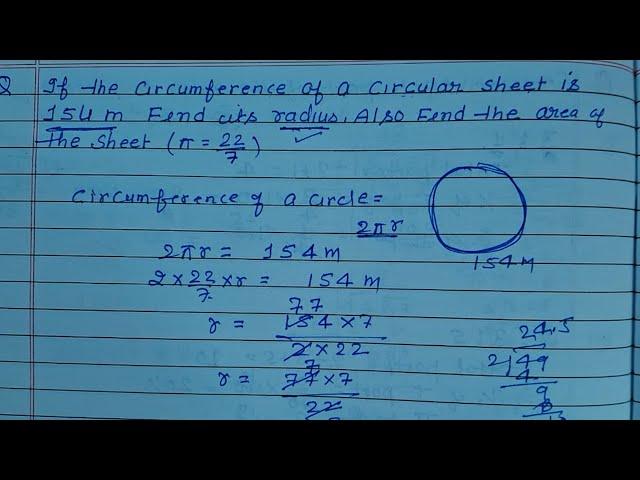 Q If the circumference of a circular sheet is
154 m Find its radius. Also Find the area of
the sheet (π = 22/7)
circumference of a circle =
2πr
154 m
2πr = 154 m
2 × 22/7 × r = 154 m
77
r = 154 × 7 / 2 × 22
7
r = 77 × 7 / 22
24.5
2 49
4
9
8